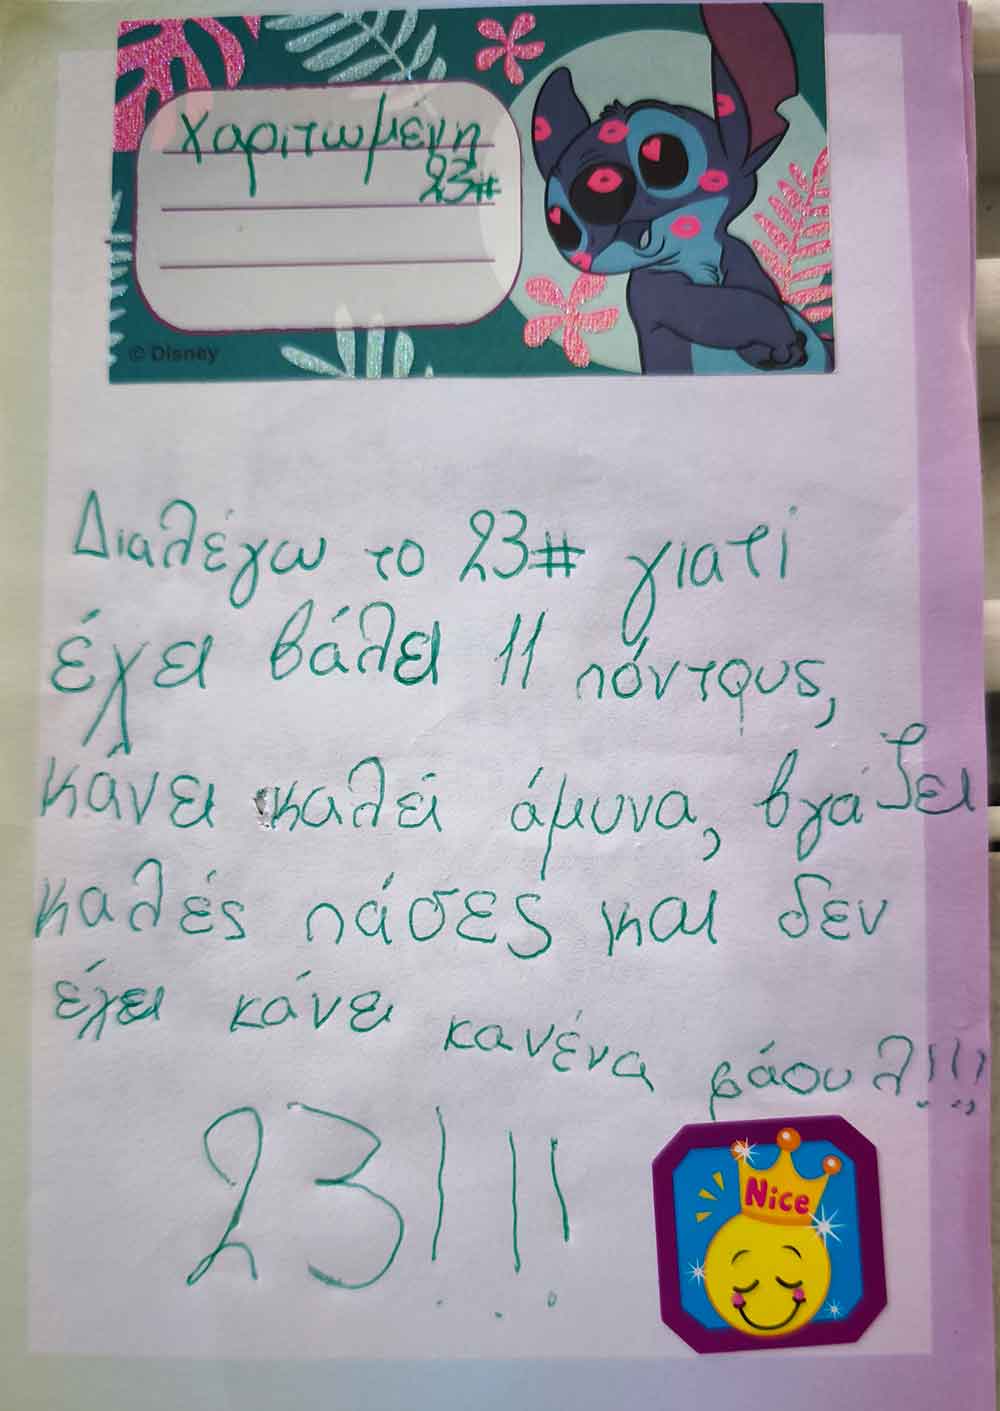 Χαριτωμένη
23#
© Disney
Διαλέγω το 23# γιατί
έχει βάλει 11 πόντους,
κάνει καλεί άμυνα, βγάζει
καλές πάσες και δεν
έχει κάνει κανένα φάουλ!!!
23!!!
Nice